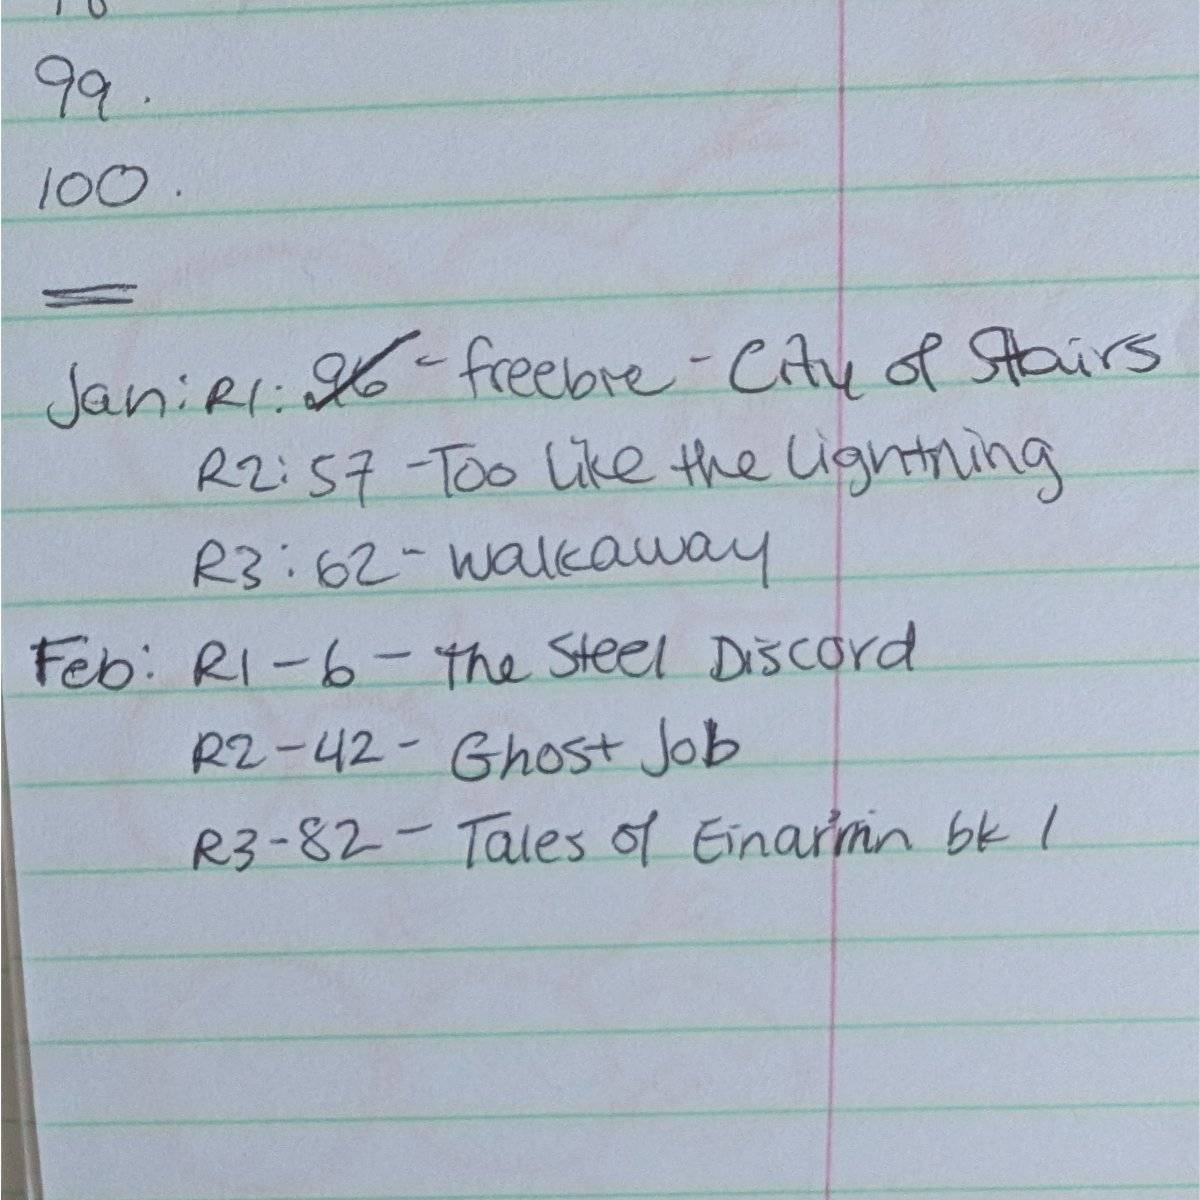 99.
100.
Jan: R1: 96 - freebie - City of Stairs
R2: 57 - Too like the Lightning
R3: 62 - walkaway
Feb: R1 - 6 - The Steel Discord
R2 - 42 - Ghost Job
R3 - 82 - Tales of Einarinn bk 1